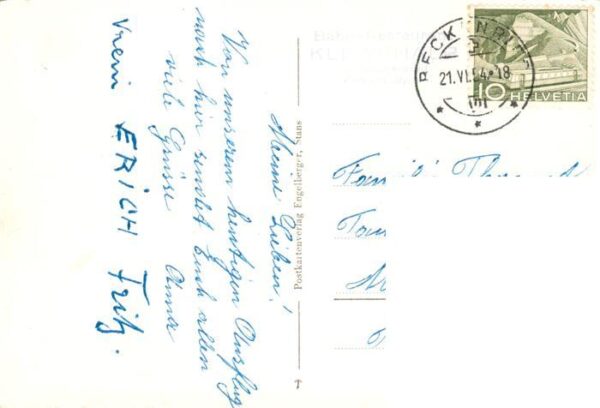 Meine Lieben!
Von unserem heutigen Ausflug
nach hier sendet Euch allen
viele Grüsse
Vreni ERICH Fritz.
Postkartenverlag Engelberger, Stans
BECKENRIED
21.VI.54-18
10 HELVETIA